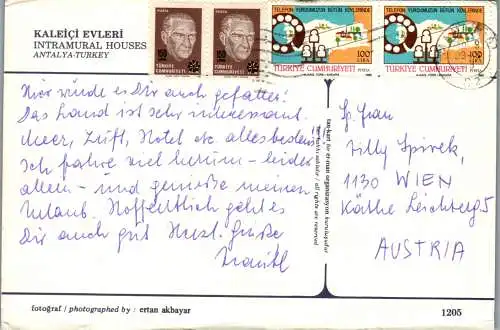 KALEİÇİ EVLERİ
INTRAMURAL HOUSES
ANTALYA-TURKEY
TÜRKİYE CUMHURİYETİ
TÜRKİYE CUMHURİYETİ
TELEFON YURDUMUZUN BÜTÜN KÖYLERİNDE
100 LİRA
TÜRKİYE CUMHURİYETİ
TELEFON YURDUMUZUN BÜTÜN KÖYLERİNDE
100 LİRA
TÜRKİYE CUMHURİYETİ
Hier würde es Dir auch gefallen!
Das Land ist sehr interessant.
Meer, Luft, Hotel etc alles bestens!
Ich fahre viel herum – leider
allein – und genieße meinen
Urlaub. Hoffentlich geht es
Dir auch gut Herzl. Grüße
Fr
1130 WIEN
5
AUSTRIA
all rights are reserved
fotoğraf / photographed by : ertan akbayar
1205